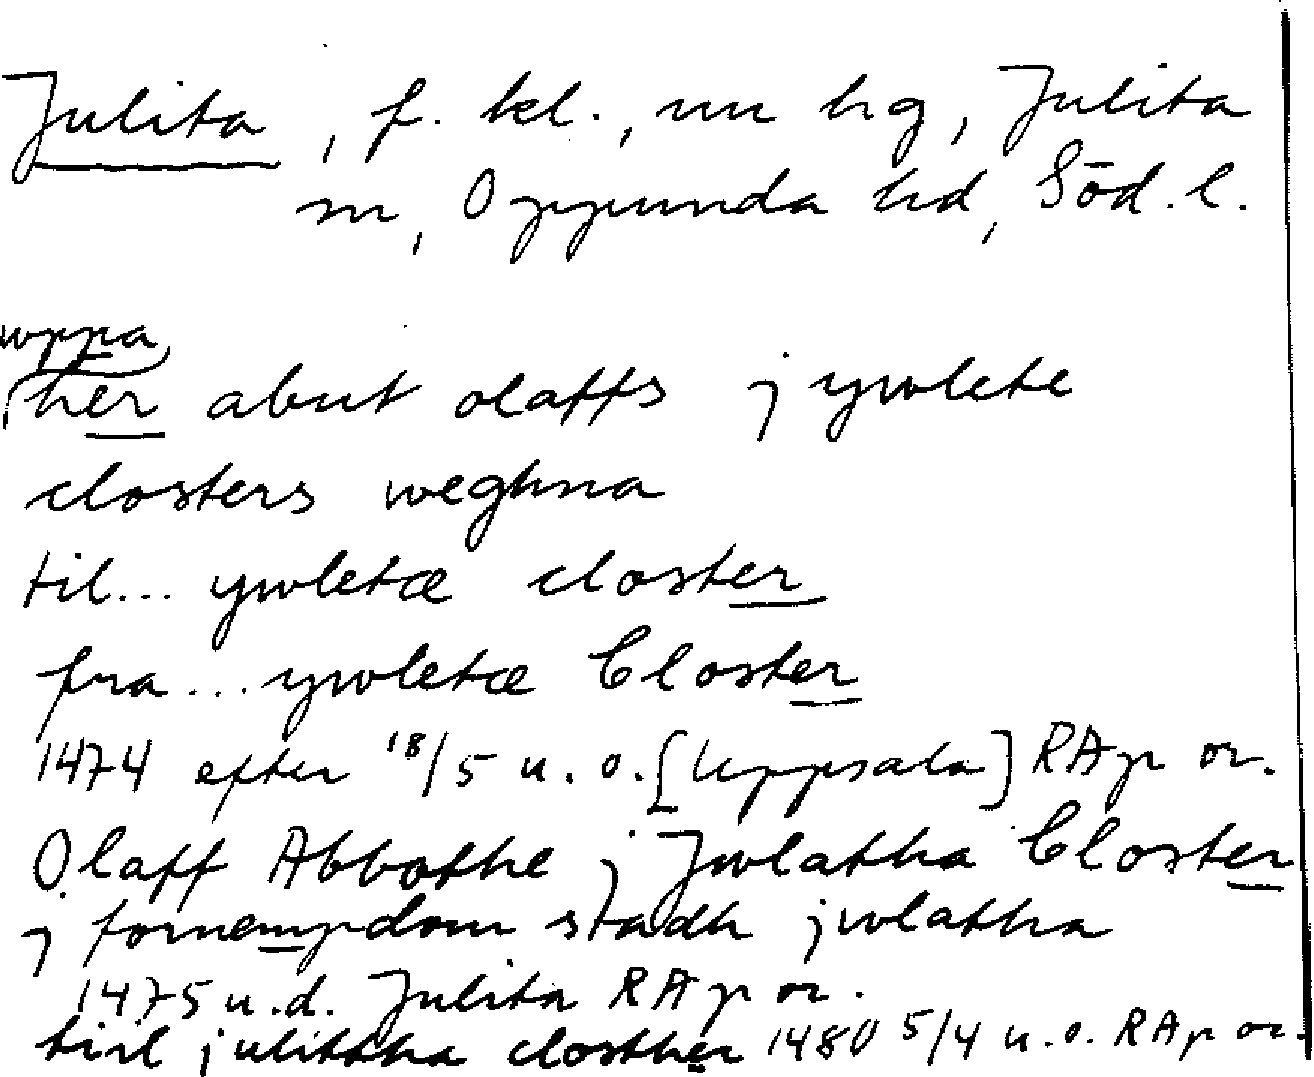 Julita, f. kl., nu hg, Julita
sn, Oppunda hd, Söd. l.
wppa
her abut olaffs j ywlete
closters weghna
til... ywletæ closter
fra... ywletæ Closter
1474 efter 18/5 u. o. [Uppsala] RAp or.
Olaff Abbothe j Jwlatha Closter
j fornempdom stadh jwlatha
1475 u.d. Julita RAp or.
tiil julittha closther 1480 5/4 u.o. RAp or.